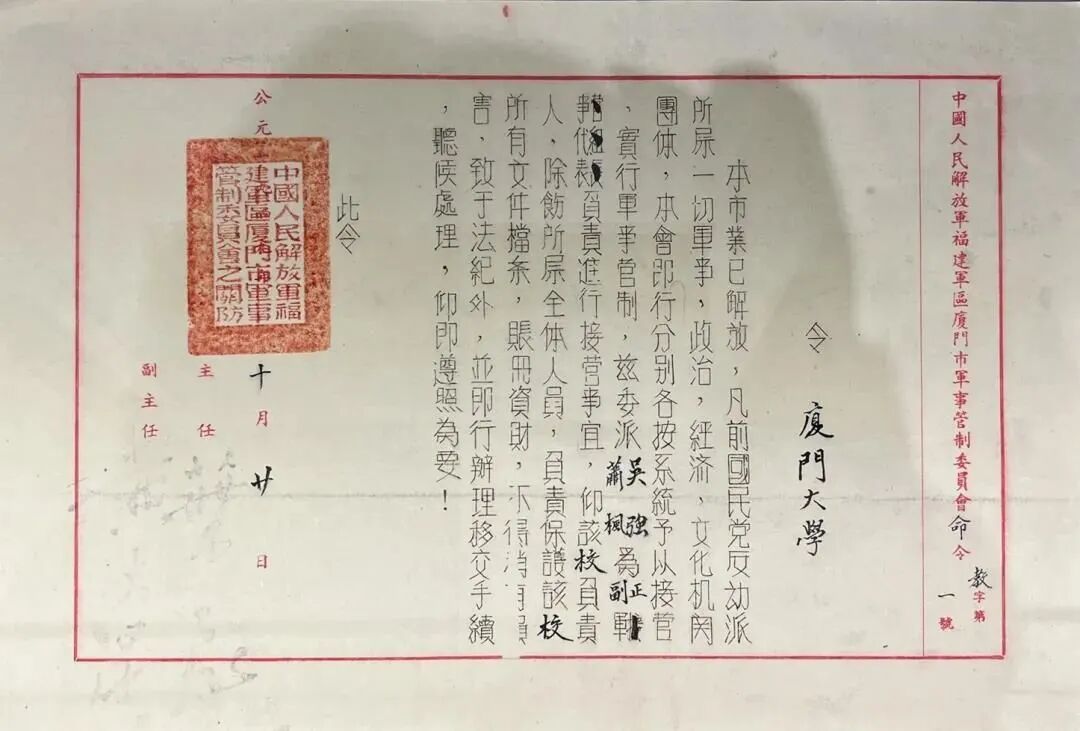 中國人民解放軍福建軍區廈門市軍事管制委員會命令
教字第
一號
令 廈門大學
本市業已解放,凡前國民党反动派
所属一切軍事,政治,經济,文化机関
團体,本會即行分别各按系統予以接管
,實行軍事管制,兹委派吳強 蕭楓為正副軍
事代表負責進行接管事宜,仰該校負責
人,除飭所属全体人員,負責保護該校
所有文件檔案,賬冊資財,不得稍有損
害,致于法紀外,並即行辦理移交手續
,聽候處理,仰即遵照為要!
此令
中國人民解放軍福
建軍區廈門市軍事
管制委員會之關防
公元 十月廿日
主任
副主任